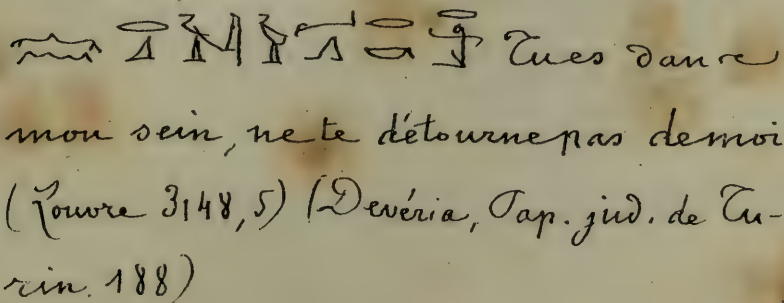 Tu es dans
mon sein, ne te détourne pas de moi
(Louvre 3148,5) (Devéria, Pap. jud. de Tu-
rin. 188)